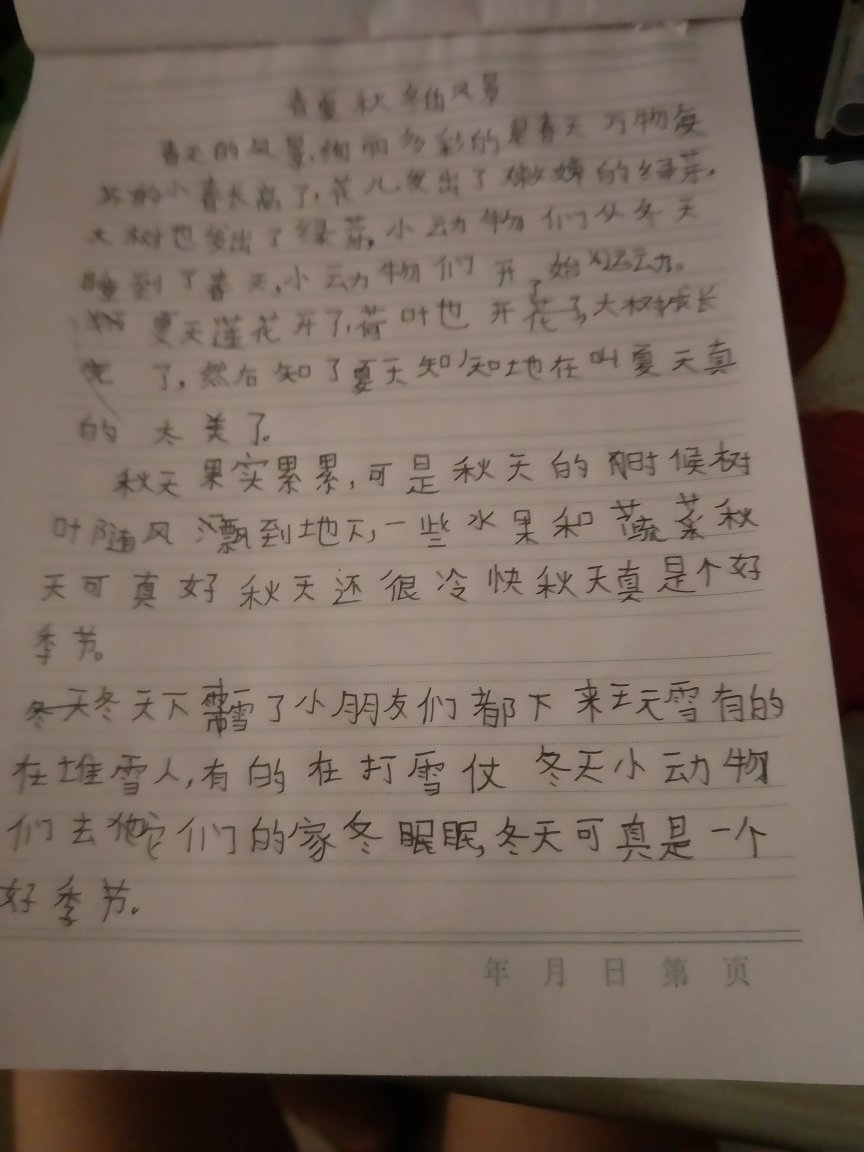 春夏秋冬的风景
春天的风景,绚丽多彩的是春天 万物复
苏的小春长高了,花儿发出了嫩嫩的绿芽,
大树也发出了绿芽,小动物们从冬天
睡到了春天,小动物们开始了运动。
夏天莲花开了,荷叶也开了,大树成长
完了,然后知了夏天知知地在叫夏天真
的太美了。
秋天果实累累,可是秋天的时候树
叶随风飘到地下,一些水果和蔬菜秋
天可真好秋天还很冷快秋天真是个好
季节。
冬天下雪了小朋友们都下来玩雪有的
在堆雪人,有的在打雪仗 冬天小动物
们去它们的家冬眠眠,冬天可真是一个
好季节。
年 月 日 第 页